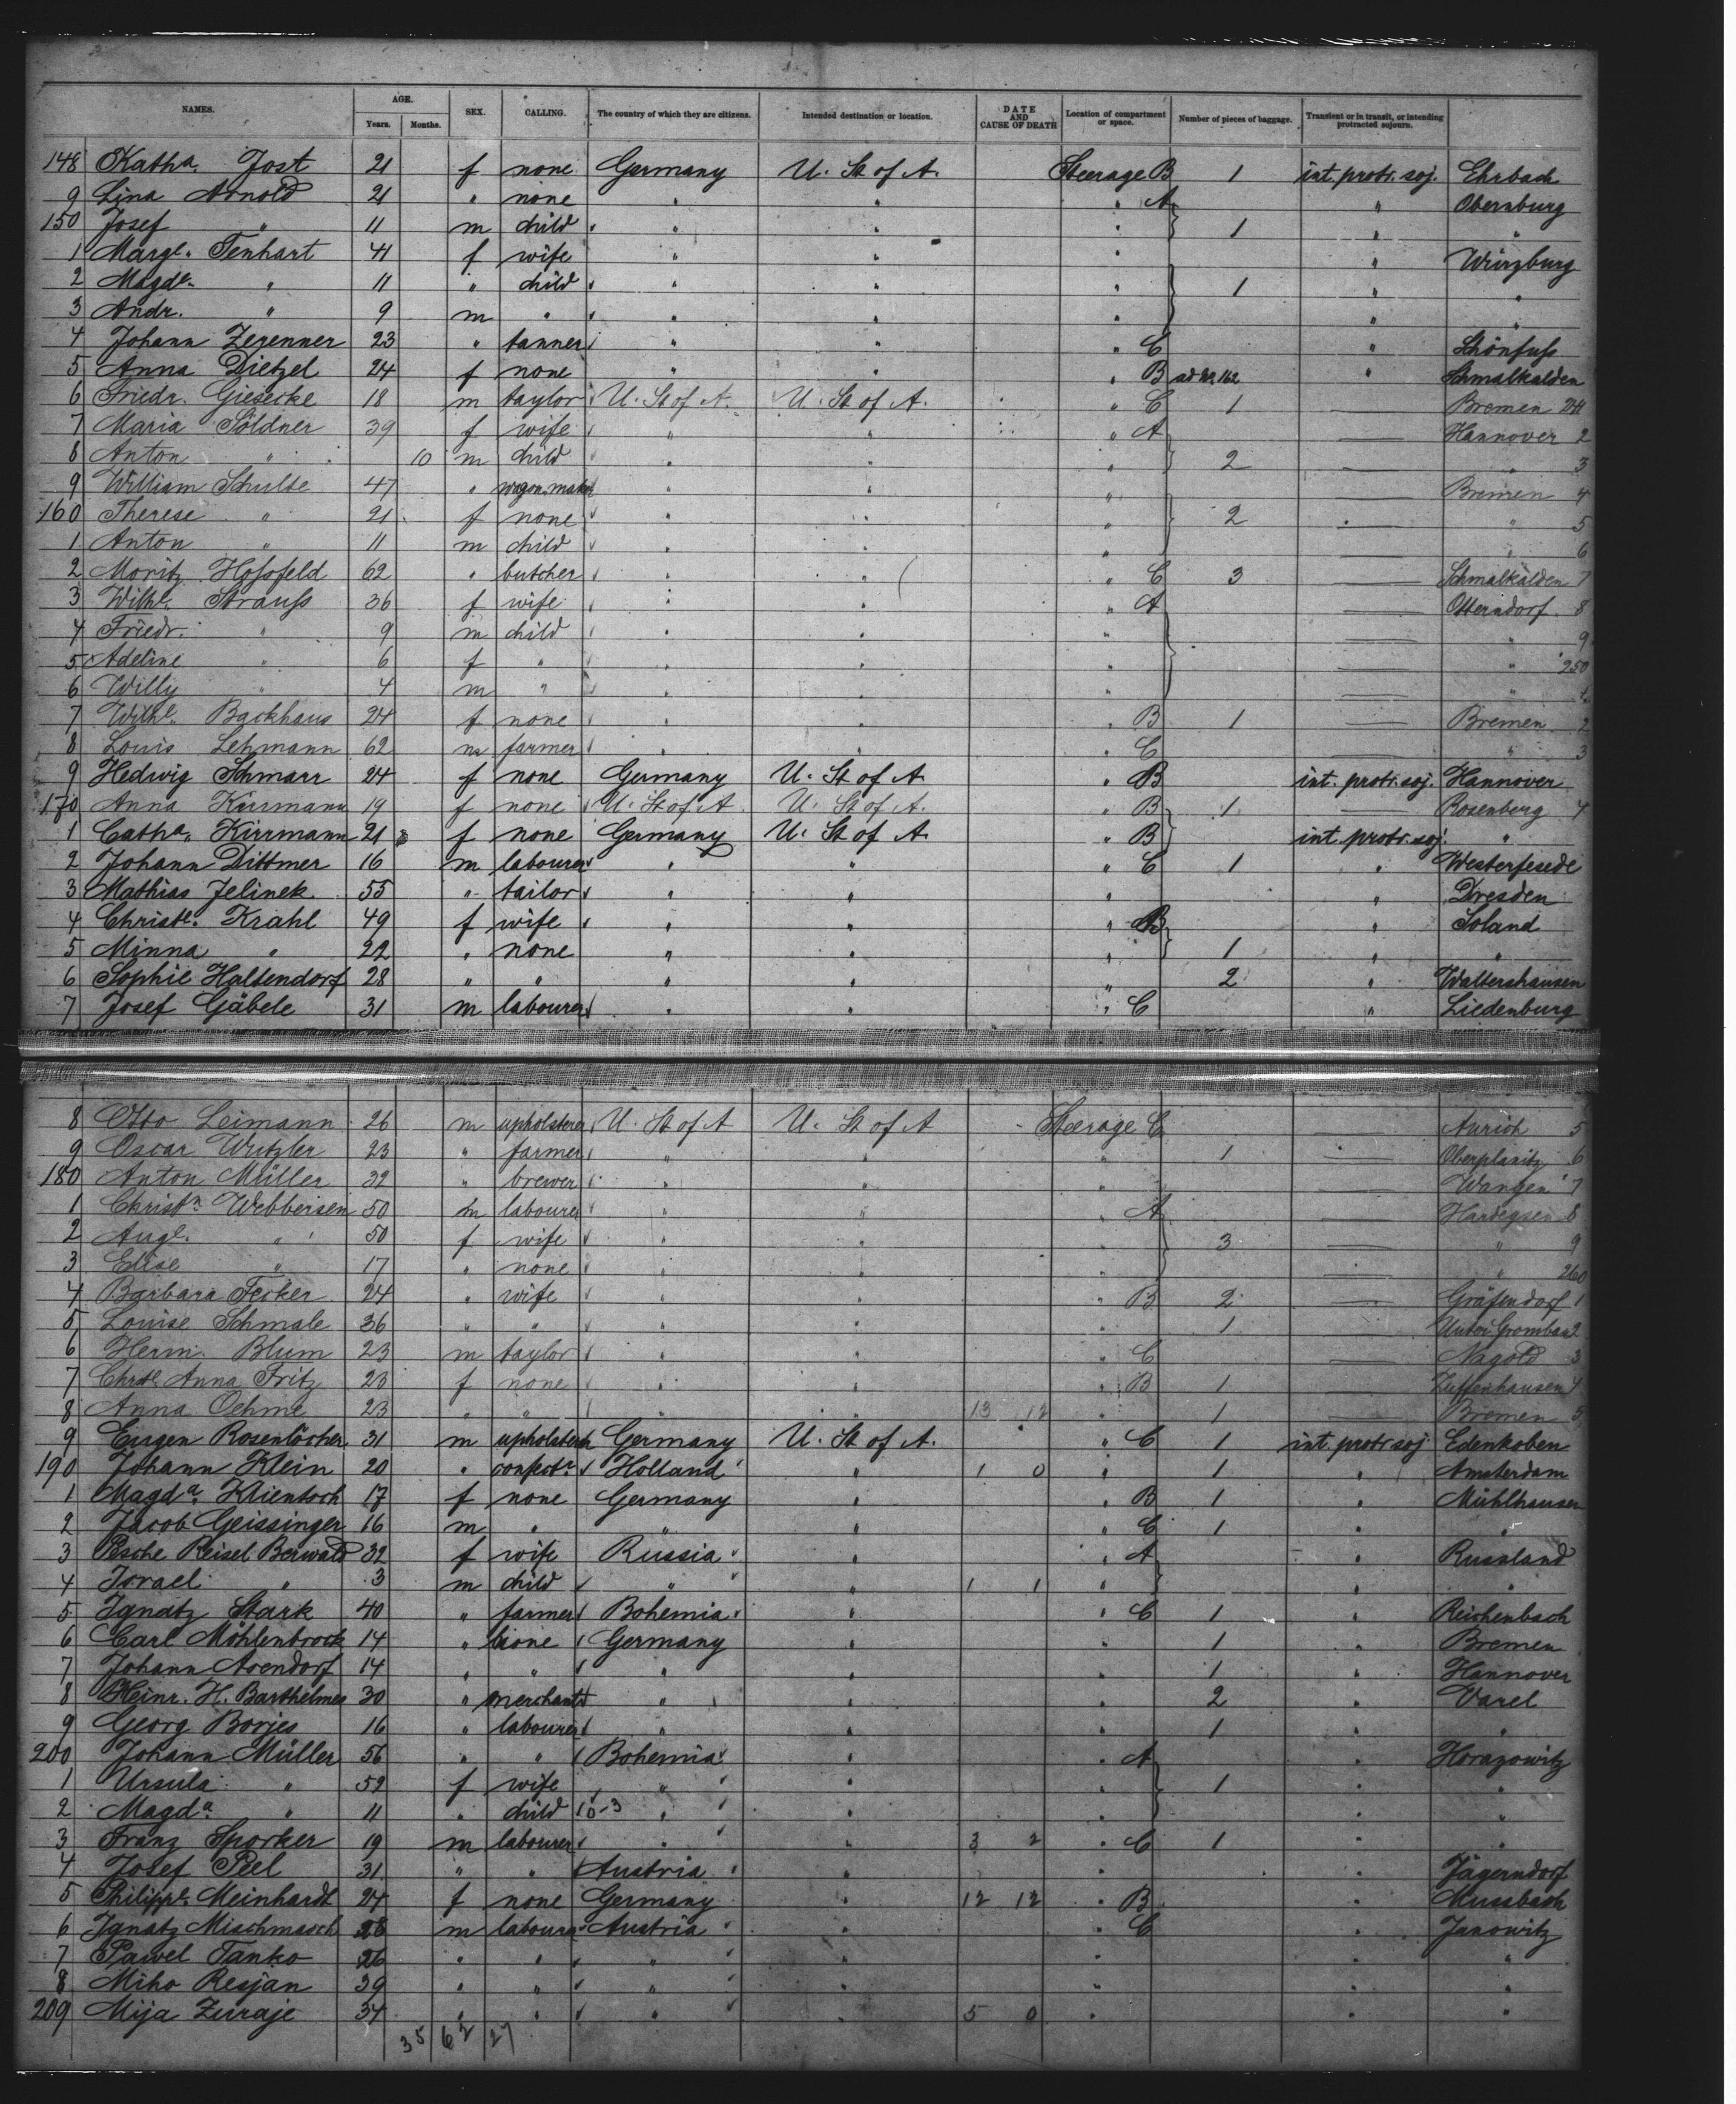 NAMES. AGE. Years. Months. SEX. CALLING. The country of which they are citizens. Intended destination or location. DATE AND CAUSE OF DEATH Location of compartment or space. Number of pieces of baggage. Transient or in transit, or intending protracted sojourn.
148 Katha. Jost 21 f none Germany U. St of A. Steerage B 1 int. protr. soj. Ehrbach
9 Lina Arnold 21 " none " " " A " Obernburg
150 Josef " 11 m child " " " 1 " "
1 Margt. Tenhart 41 f wife " " " " Würzburg
2 Magde. " 11 " child " " " 1 " "
3 Andr. " 9 m " " " " " "
4 Johann Zerenner 23 " tanner " " " C " Schönfuss
5 Anna Dietzel 24 f none " " " B ad No. 162 " Schmalkalden
6 Friedr. Giesecke 18 m taylor U. St of A. U. St of A. " C 1 — Bremen 244
7 Maria Söldner 39 f wife " " " A — Hannover 2
8 Anton " 10 m child " " " 2 — " 3
9 William Schulte 47 " wagonmaker " " " — Bremen 4
160 Therese " 21 f none " " " 2 — " 5
1 Anton " 11 m child " " " — " 6
2 Moritz Hossfeld 62 " butcher " " " C 3 — Schmalkalden 7
3 Wilhe. Strauss 36 f wife " " " A — Otterndorf 8
4 Friedr. " 9 m child " " " — " 9
5 Adeline " 6 f " " " " — " 250
6 Willy " 4 m " " " " — " 1
7 Wilhe. Backhaus 24 f none " " " B 1 — Bremen 2
8 Louis Lehmann 62 m farmer " " " C — " 3
9 Hedwig Schmarr 24 f none Germany U. St of A " B int. protr. soj. Hannover
170 Anna Kirrmann 19 f none U. St of A U. St of A. " B 1 — Rosenberg 4
1 Catha. Kirrmann 21 f none Germany U. St of A. " B int. protr. soj. "
2 Johann Dittmer 16 m labourer " " " C 1 " Westerfesede
3 Mathias Jelinek 55 " tailor " " " " Dresden
4 Christe. Krahl 49 f wife " " " B " Soland
5 Minna " 22 " none " " " 1 " "
6 Sophie Haltendorf 28 " " " " " 2 " Waltershausen
7 Josef Gäbele 31 m labourer " " " C " Liedenburg
8 Otto Leimann 26 m upholsterer U. St of A U. St of A Steerage C Aurich 5
9 Oscar Wutzler 23 " farmer " " " 1 — Oberplanitz 6
180 Anton Müller 32 " brewer " " " — Wangen 7
1 Christn. Webbersen 50 m labourer " " " A — Hardegsen 8
2 Auge. " 50 f wife " " " 3 — " 9
3 Elise " 17 " none " " " — " 260
4 Barbara Fecker 24 " wife " " " B 2 — Gräfendorf 1
5 Louise Schmale 36 " " " " " 1 — Unter Grombach 2
6 Herm. Blum 23 m taylor " " " C — Nagold 3
7 Chrste Anna Fritz 23 f none " " " B 1 — Zuffenhausen 4
8 Anna Oehme 23 " " " " 13 12 " 1 — Bremen 5
9 Eugen Rosenlöcher 31 m upholsterer Germany U. St of A. " C 1 int. protr. soj. Edenkoben
190 Johann Klein 20 " confectr. Holland " 1 0 " 1 " Amsterdam
1 Magda. Klientoch 17 f none Germany " " B 1 " Mühlhausen
2 Jacob Geissinger 16 m " " " " C 1 " "
3 Pesche Reisel Berwald 32 f wife Russia " " A " Russland
4 Israel " 3 m child " " 1 1 " " "
5 Ignatz Stark 40 " farmer Bohemia " " C 1 " Reichenbach
6 Carl Möhlenbrock 14 " none Germany " " 1 " Bremen
7 Johann Arendorf 14 " " " " " 1 " Hannover
8 Heinr. H. Barthelmes 30 " merchant " " " 2 " Varel
9 Georg Borjes 16 " labourer " " " 1 " "
200 Johann Müller 56 " " Bohemia " " A " Horazowitz
1 Ursula " 52 f wife " " " 1 " "
2 Magda. " 11 " child 10-3 " " " " "
3 Franz Sporker 19 m labourer " " 3 2 " C 1 " "
4 Josef Peel 31 " " Austria " " " Jägerndorf
5 Philippe. Meinhardt 24 f none Germany " 12 12 " B " Mussbach
6 Ignatz Mischmasch 28 m labourer Austria " " C " Janowitz
7 Pawel Tanko 26 " " " " " " "
8 Miho Resjan 39 " " " " " " "
209 Mija Zuraje 34 " " " " 5 0 " " "
35 62 27